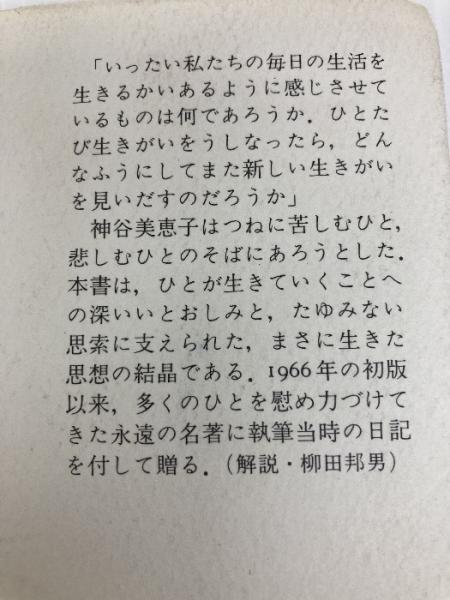 「いったい私たちの毎日の生活を
生きるかいあるように感じさせて
いるものは何であろうか．ひとた
び生きがいをうしなったら，どん
なふうにしてまた新しい生きがい
を見いだすのだろうか」
神谷美恵子はつねに苦しむひと，
悲しむひとのそばにあろうとした．
本書は，ひとが生きていくことへ
の深いいとおしみと，たゆみない
思索に支えられた，まさに生きた
思想の結晶である．1966年の初版
以来，多くのひとを慰め力づけて
きた永遠の名著に執筆当時の日記
を付して贈る．（解説・柳田邦男）